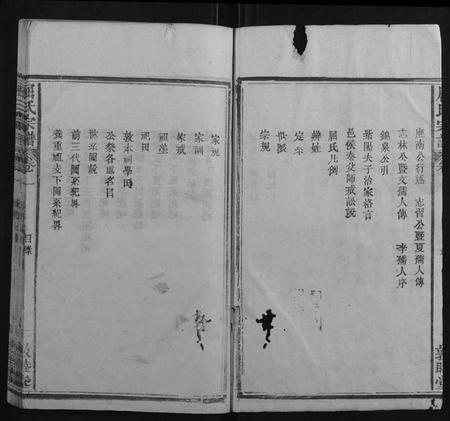 應南公行述 志習公暨夏孺人傳
志林公暨文孺人傳 李孺人序
錦泉公引
紫陽夫子治家格言
邑侯秦父師戒訟說
屈氏凡例
辨姓
定宗
世派
宗規
敦睦堂
家規
家訓
家戒
祠產
祀田
敦本祠學田
公祭各墓名目
世系圖說
前三代圖系紀畧
養重祖支下圖系紀畧
屈氏宗譜 卷一
目錄
敦睦堂